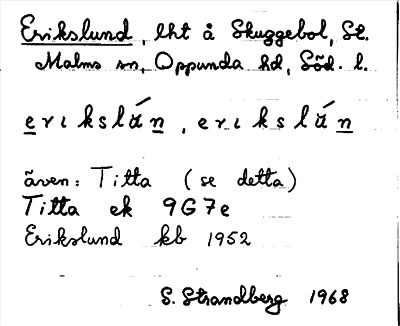 Erikslund, lht å Skuggebol, St.
Malms sn, Oppunda hd, Söd. l.
erikslán, erikslán
även: Titta (se detta)
Titta ek 9G7e
Erikslund kb 1952
S. Strandberg 1968